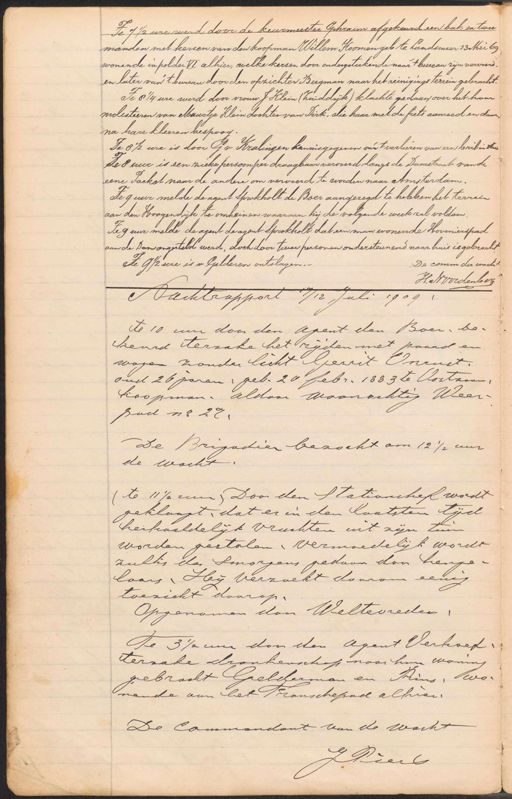 Te 7 1/2 ure werd door de keurmeester Ephraim afgekeurd een bak en twee
manden met kersen van den koopman Willem Koomen geb te Landsmeer 13 Mei 69
wonende in polder VI alhier, welke kersen door ondergetekende naar 't bureau zijn vervoerd
en later van 't bureau door den opzichter Bregman naar het reinigings terrein gebracht.
Te 8 1/4 ure werd door vrouw J Klein (Zuiddijk) klachte gedaan over het
molesteeren van Maartje Klein dochter van Dirk, die haar met de fiets aanreed en
na hare kleeren
Te 8 1/2 ure is door kennisgegeven van 't verlies van een
Te 8 uur is een zieke persoon per draagbaar vervoerd langs de Damstraat van de
eene Parket naar de andere om vervoerd te worden naar Amsterdam.
Te 9 uur melde de agent Sprokholt de Boer aangezegd te hebben het terrein
aan den Hoogendijk te omheinen waaraan hij de volgende week zal voldoen.
Te 9 uur melde de agent de agent Sprokholt dat een man wonende Horniespad
aan de Dam ongesteld werd, doch door twee personen ondersteunend naar huis is gebracht
Te 9 1/2 ure is v Gelderen ontslagen. De comm de wacht
H. Noordenbos
Nachtrapport 11/12 Juli 1909.
te 10 uur door den agent den Boer. be-
keurd terzake het rijden met paard en
wagen zonder licht Gerrit
oud 26 jaren, geb. 20 febr. 1883 te Oostzaan,
koopman. aldaar woonachtig Weer-
pad no 27.
De Brigadier bezocht om 12 1/2 uur
de wacht.
(te 11 1/2 uur) Door den Stationschef wordt
geklaagd, dat er in den laatsten tijd
herhaaldelijk vruchten uit zijn tuin
worden gestolen. Vermoedelijk wordt
zulks des morgens gedaan door henge-
laars. Hij verzoekt daarom eenig
toezicht daarop.
Opgenomen door Weltevreden.
Te 3 1/2 uur door den agent Verhoef,
terzake dronkenschap naar hun woning
gebracht Gelderman en Prins, wo-
nende aan het Franschepad alhier.
De commandant van de wacht
J Piers